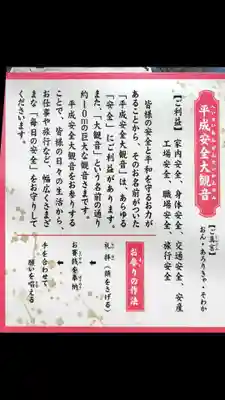 へいせいあんぜんだいかんのん
平成安全大観音
【ご真言】
おん・あろりきゃ・そわか
【ご利益】 家内安全、身体安全、交通安全、安産
工場安全、職場安全、旅行安全
皆様の安全と平和を守るお力が
あることから、そのお名前がついた
「平成安全大観音」は、あらゆる
「安全」にご利益があります。
また、「大観音」という名前の通り
約10mの巨大な観音さまです。
平成安全大観音をお参りする
ことで、皆様の日々の生活から、
お仕事や旅行など、幅広くさまざ
まな「毎日の安全」をお守りして
くださいます。
お参りの作法
礼拝(頭をさげる)
↓
お賽銭を奉納
↓
手を合わせて
願いを唱える